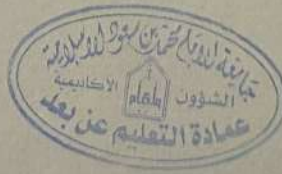 جامعة الإمام محمد بن سعود الإسلامية
الشؤون الأكاديمية
عمادة التعليم عن بعد